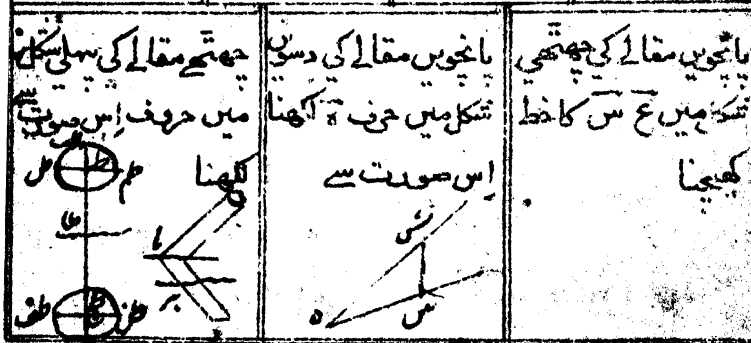 پانچویں مقالے کی چھتھی
شکل میں عٓ سٓ کا خط
کھیچنا
پانچویں مقالے کی دسویں
شکل میں حرف هٓ لکھنا
اِس صورت سے
ش
س
ه
چھتھے مقالے کی پہلی شکل
میں حروف اِس صورت سے
لکھنا
طل
طم
ط
ما
بر
طف
طز